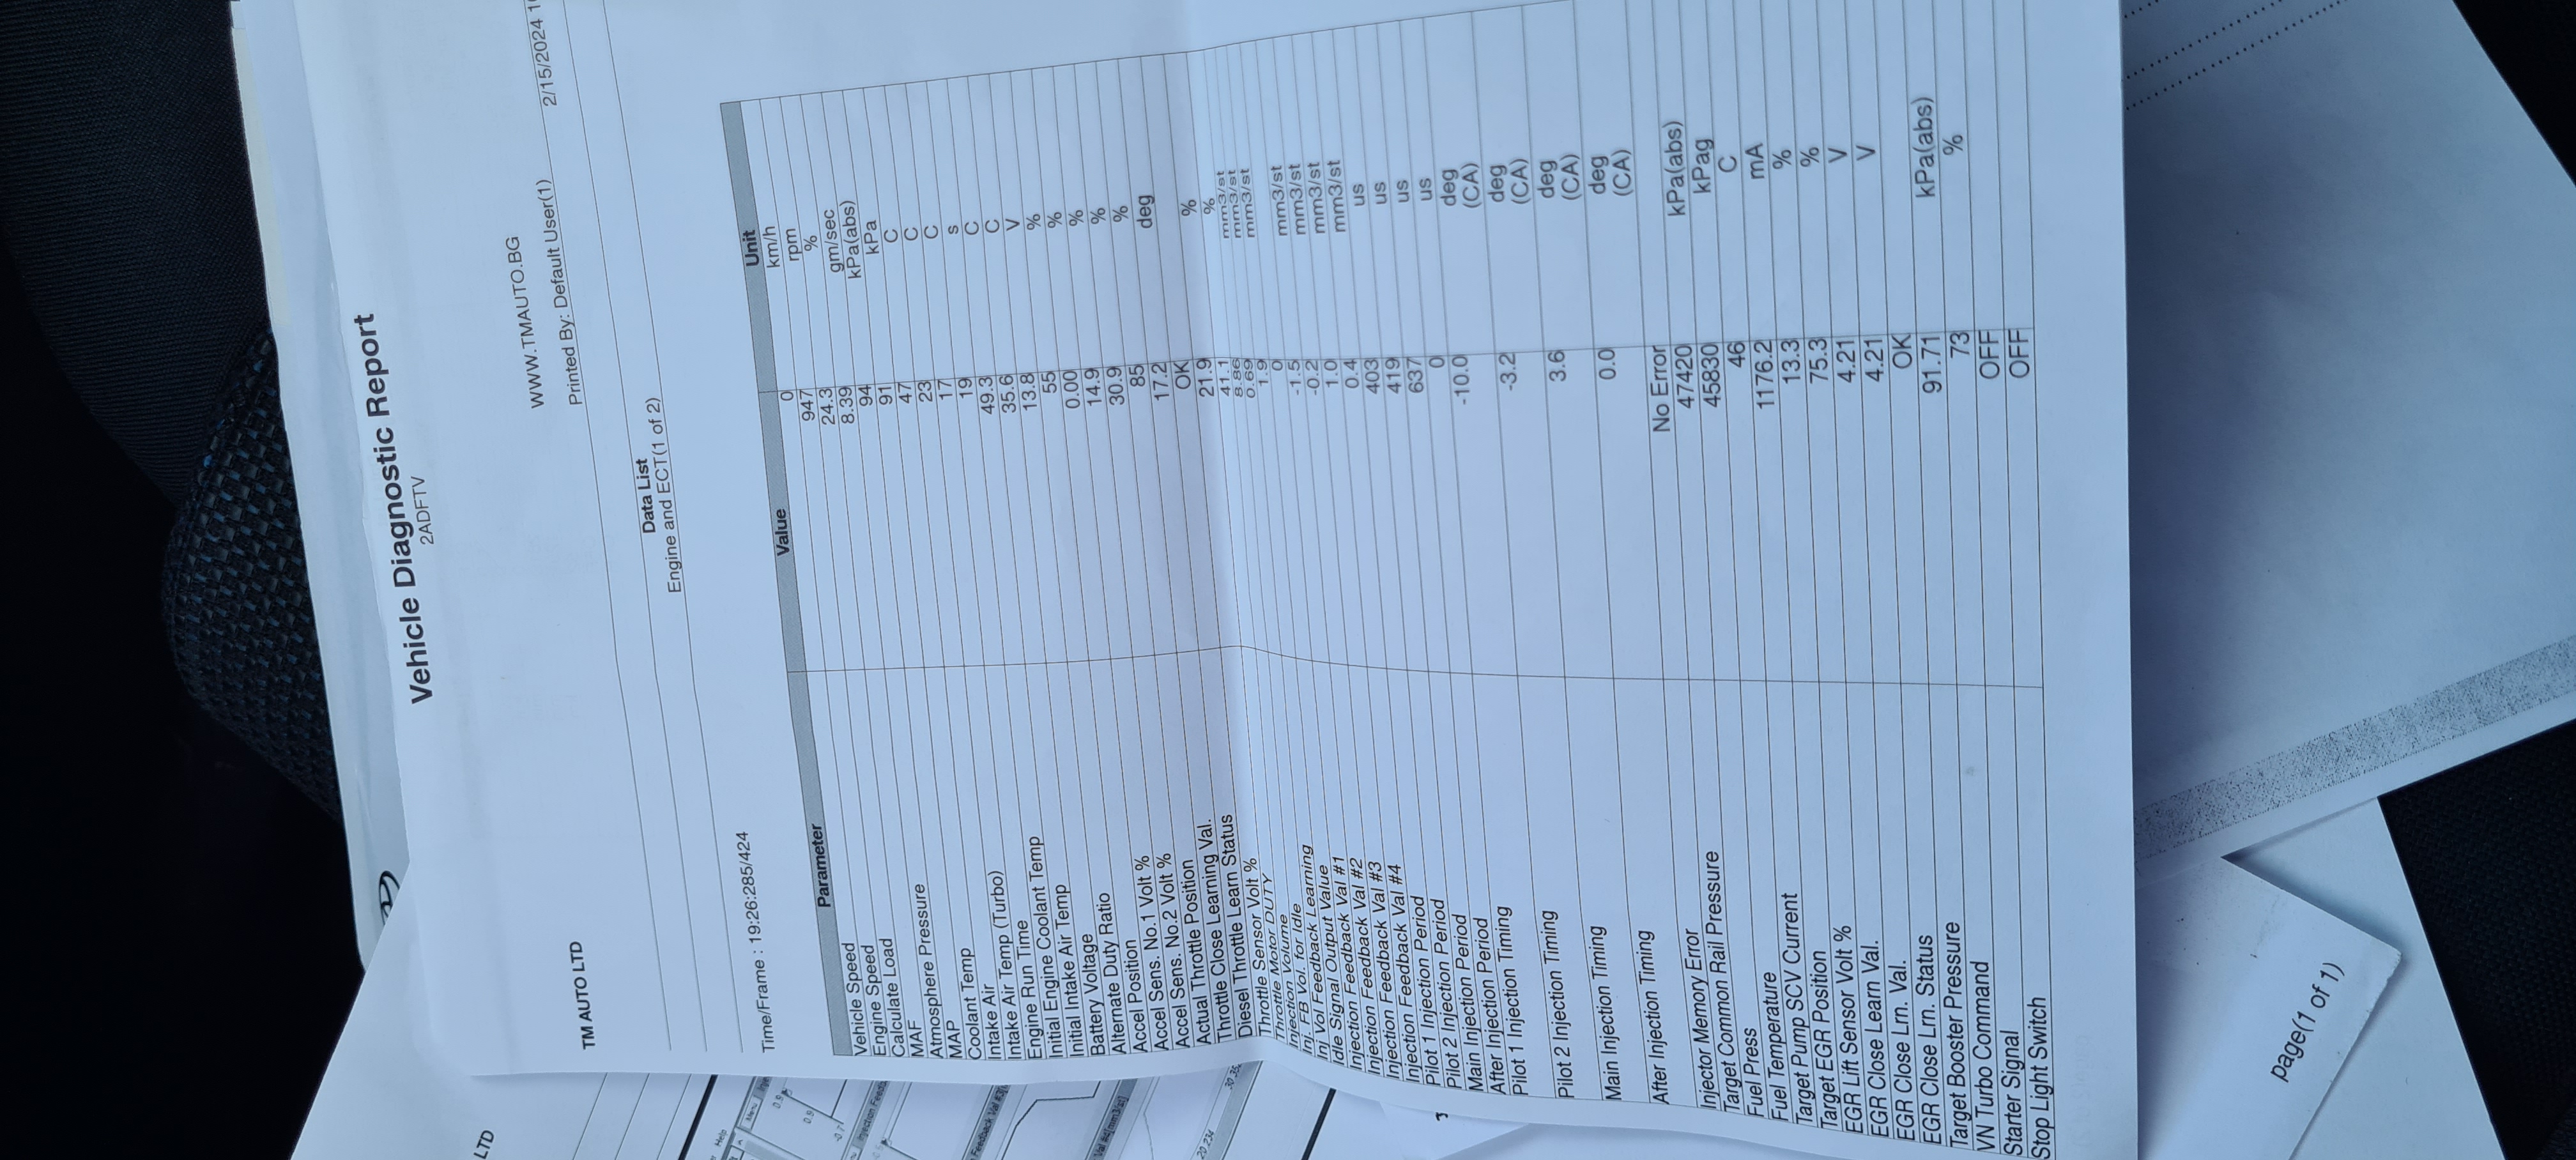 Vehicle Diagnostic Report
2ADFTV
WWW.TMAUTO.BG
TM AUTO LTD
Printed By: Default User(1)
2/15/2024
Data List
Engine and ECT(1 of 2)
Time/Frame : 19:26:285/424
Parameter Value Unit
Vehicle Speed 0 km/h
Engine Speed 947 rpm
Calculate Load 24.3 %
MAF 8.39 gm/sec
Atmosphere Pressure 94 kPa(abs)
MAP 91 kPa
Coolant Temp 47 C
Intake Air 23 C
Intake Air Temp (Turbo) 17 C
Engine Run Time 19 s
Initial Engine Coolant Temp 49.3 C
Initial Intake Air Temp 35.6 C
Battery Voltage 13.8 V
Alternate Duty Ratio 55 %
Accel Position 0.00 %
Accel Sens. No.1 Volt % 14.9 %
Accel Sens. No.2 Volt % 30.9 %
Actual Throttle Position 85 %
Throttle Close Learning Val. 17.2 deg
Diesel Throttle Learn Status OK
Throttle Sensor Volt % 21.9 %
Throttle Motor DUTY 41.1 %
Injection Volume 8.86 mm3/st
Inj. FB Vol. for Idle 0.69 mm3/st
Inj Vol Feedback Learning 1.9 mm3/st
Idle Signal Output Value 0
Injection Feedback Val #1 -1.5 mm3/st
Injection Feedback Val #2 -0.2 mm3/st
Injection Feedback Val #3 1.0 mm3/st
Injection Feedback Val #4 0.4 mm3/st
Pilot 1 Injection Period 403 us
Pilot 2 Injection Period 419 us
Main Injection Period 637 us
After Injection Period 0 us
Pilot 1 Injection Timing -10.0 deg
(CA)
Pilot 2 Injection Timing -3.2 deg
(CA)
Main Injection Timing 3.6 deg
(CA)
After Injection Timing 0.0 deg
(CA)
Injector Memory Error No Error
Target Common Rail Pressure 47420 kPa(abs)
Fuel Press 45830 kPag
Fuel Temperature 46 C
Target Pump SCV Current 1176.2 mA
Target EGR Position 13.3 %
EGR Lift Sensor Volt % 75.3 %
EGR Close Learn Val. 4.21 V
EGR Close Lrn. Val. 4.21 V
EGR Close Lrn. Status OK
Target Booster Pressure 91.71 kPa(abs)
VN Turbo Command 73 %
Starter Signal OFF
Stop Light Switch OFF
LTD
Help
Menu
page(1 of 1)